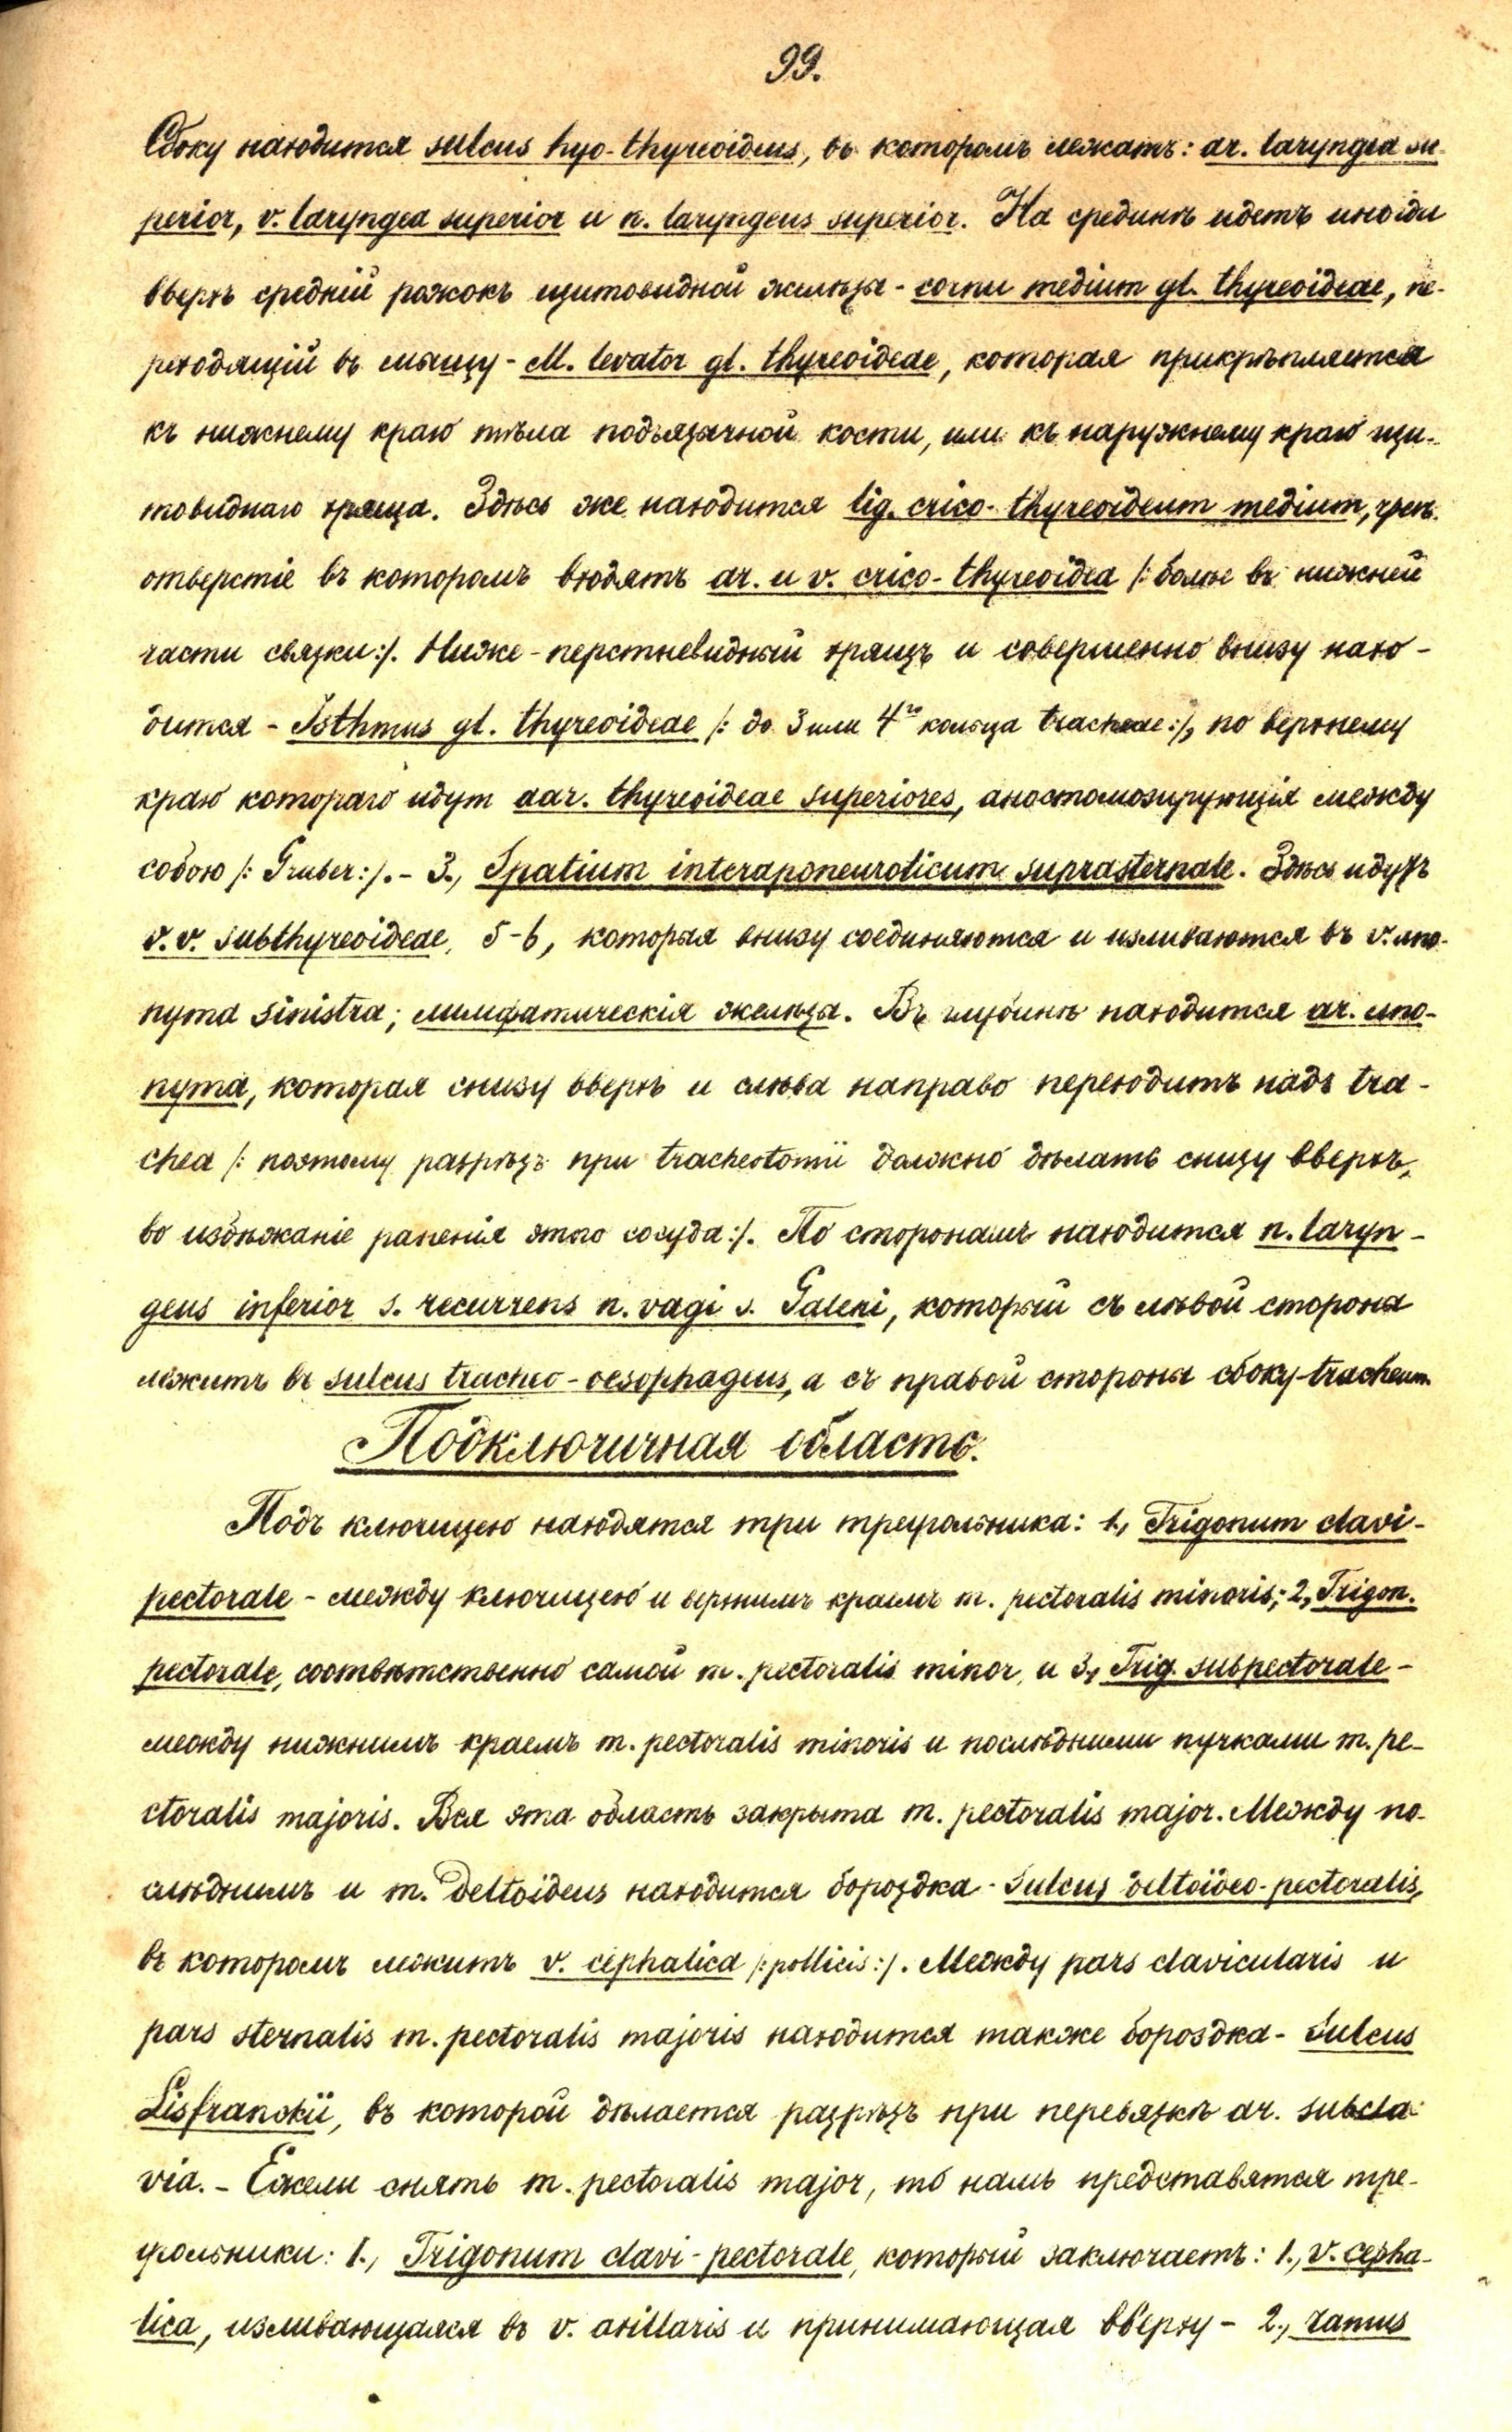 99.
Сбоку находится sulcus hyo-thyreoideus, въ которомъ лежатъ: ar. laryngea su-
perior, v. laryngea superior и n. laryngeus superior. На срединѣ идетъ иногда
вверхъ средній рожокъ щитовидной железы - cornu medium gl. thyreoideae, пе-
реходящій въ мышцу - M. levator gl. thyreoideae, которая прикрѣпляется
къ нижнему краю тѣла подъязычной кости, или къ наружному краю щи-
товиднаго хряща. Здѣсь же находится lig. crico-thyreoideum medium, чрезъ
отверстіе въ которомъ входятъ ar. и v. crico-thyreoidea /: болѣе въ нижней
части связки:/. Ниже - перстневидный хрящъ и совершенно внизу нахо-
дится - Isthmus gl. thyreoideae /: до 3 или 4го кольца tracheae:/, по верхнему
краю котораго идут aar. thyreoideae superiores, анастомозирующія между
собою /: Gruber:/. - 3., Spatium interaponeuroticum suprasternale. Здѣсь идутъ
v.v. subthyreoideae, 5-6, которыя внизу соединяются и изливаются въ v. ano-
nyma sinistra; лимфатическія железы. Въ глубинѣ находится ar. ano-
nyma, которая снизу вверхъ и слѣва направо переходитъ надъ tra-
chea /: поэтому разрѣзъ при tracheotomii должно дѣлать снизу вверхъ,
во избѣжаніе раненія этого сосуда:/. По сторонамъ находится n. laryn-
geus inferior s. recurrens n. vagi s. Galeni, который съ лѣвой стороны
лежитъ въ sulcus tracheo-oesophageus, а съ правой стороны сбоку tracheum.
Подключичная область.
Подъ ключицею находятся три треугольника: 1., Trigonum clavi-
pectorale - между ключицею и верхнимъ краемъ m. pectoralis minoris; 2., Trigon.
pectorale, соотвѣтственно самой m. pectoralis minor, и 3., Trig. subpectorale -
между нижнимъ краемъ m. pectoralis minoris и послѣдними пучками m. pe-
ctoralis majoris. Вся эта область закрыта m. pectoralis major. Между по-
слѣднимъ и m. deltoideus находится бороздка - Sulcus deltoideo-pectoralis,
въ которомъ лежитъ v. cephalica /: pollicis:/. Между pars clavicularis и
pars sternalis m. pectoralis majoris находится также бороздка - Sulcus
Lisfranckii, въ которой дѣлается разрѣзъ при перевязкѣ ar. subcla-
via. - Ежели снять m. pectoralis major, то намъ представятся тре-
угольники: I., Trigonum clavi-pectorale, который заключаетъ: 1., v. cepha-
lica, изливающаяся въ v. axillaris и принимающая вверху - 2., ramus